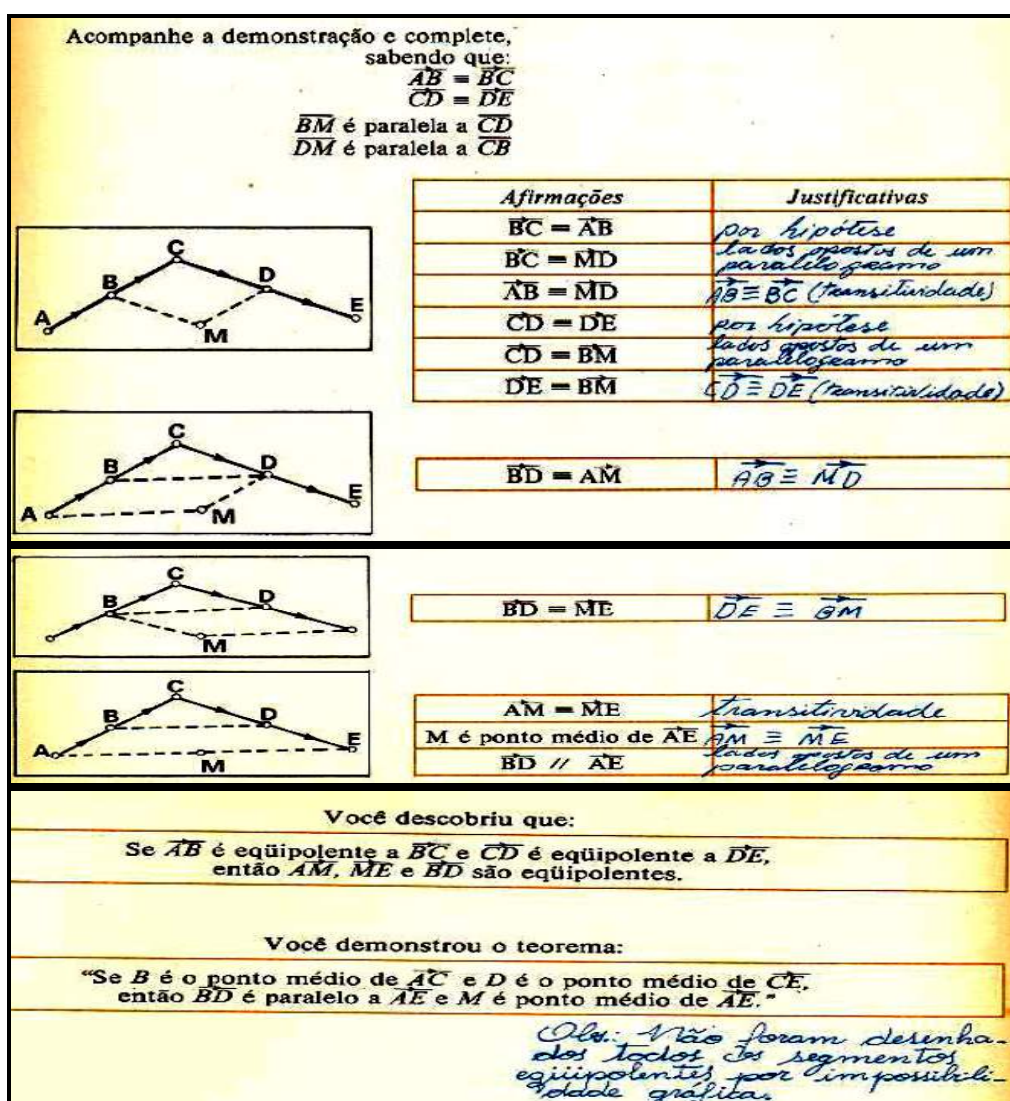 Acompanhe a demonstração e complete,
sabendo que:
AB = BC
CD = DE
BM é paralela a CD
DM é paralela a CB
Afirmações Justificativas
BC = AB por hipótese
BC = MD lados opostos de um
paralelogramo
AB = MD AB ≡ BC (transitividade)
CD = DE por hipótese
CD = BM lados opostos de um
paralelogramo
DE = BM CD ≡ DE (transitividade)
C
B
D
A
M
E
C
B
D
E
A
M
BD = AM AB ≡ MD
C
B
D
M
BD = ME DE ≡ BM
C
B
D
A
E
M
AM = ME transitividade
M é ponto médio de AE AM ≡ ME
BD // AE lados opostos de um
paralelogramo
Você descobriu que:
Se AB é eqüipolente a BC e CD é eqüipolente a DE,
então AM, ME e BD são eqüipolentes.
Você demonstrou o teorema:
“Se B é o ponto médio de AC e D é o ponto médio de CE,
então BD é paralelo a AE e M é ponto médio de AE.”
Obs.: Não foram desenha-
dos todos os segmentos
eqüipolentes por impossibili-
dade gráfica.